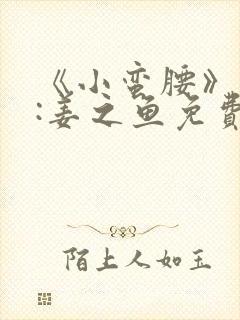 《小蛮腰》
:姜之鱼免費
陌上人如玉